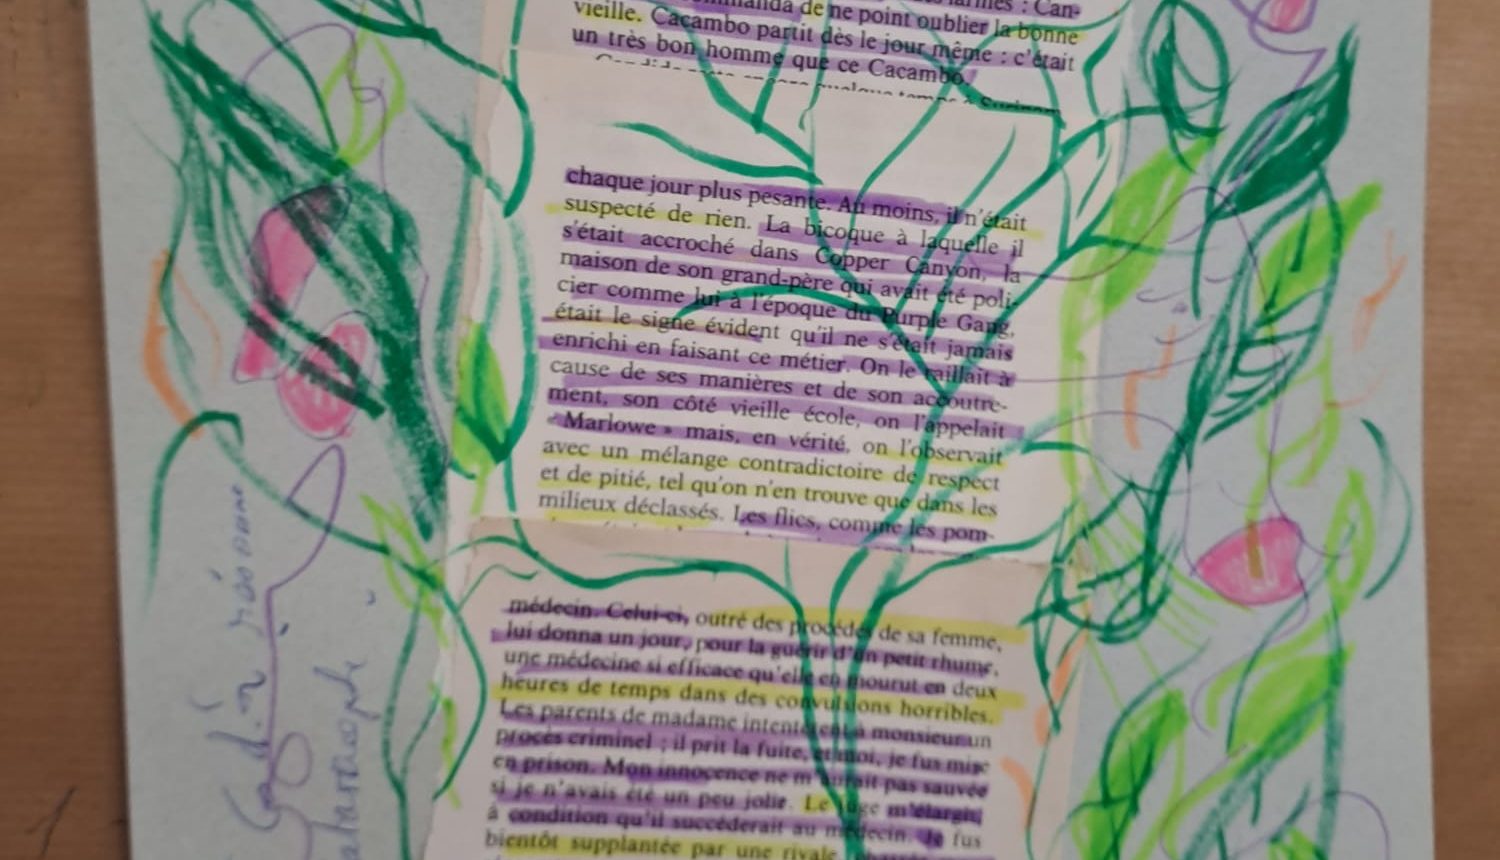 larmes : Can-
de ne point oublier la bonne
vieille. Cacambo partit dès le jour même : c'était
un très bon homme que ce Cacambo.
chaque jour plus pesante. Au moins, il n'était
suspecté de rien. La bicoque à laquelle il
s'était accroché dans Copper Canyon, la
maison de son grand-père qui avait été poli-
cier comme lui à l'époque du Purple Gang,
était le signe évident qu'il ne s'était jamais
enrichi en faisant ce métier. On le raillait à
cause de ses manières et de son accoutre-
ment, son côté vieille école, on l'appelait
« Marlowe » mais, en vérité, on l'observait
avec un mélange contradictoire de respect
et de pitié, tel qu'on n'en trouve que dans les
milieux déclassés. Les flics, comme les pom-
médecin. Celui-ci, outré des procédés de sa femme,
lui donna un jour, pour la guérir d'un petit rhume,
une médecine si efficace qu'elle en mourut en deux
heures de temps dans des convulsions horribles.
Les parents de madame intentèrent à monsieur un
procès criminel ; il prit la fuite, et moi, je fus mise
en prison. Mon innocence ne m'aurait pas sauvée
si je n'avais été un peu jolie. Le juge m'élargit
à condition qu'il succéderait au médecin. Je fus
bientôt supplantée par une rivale,